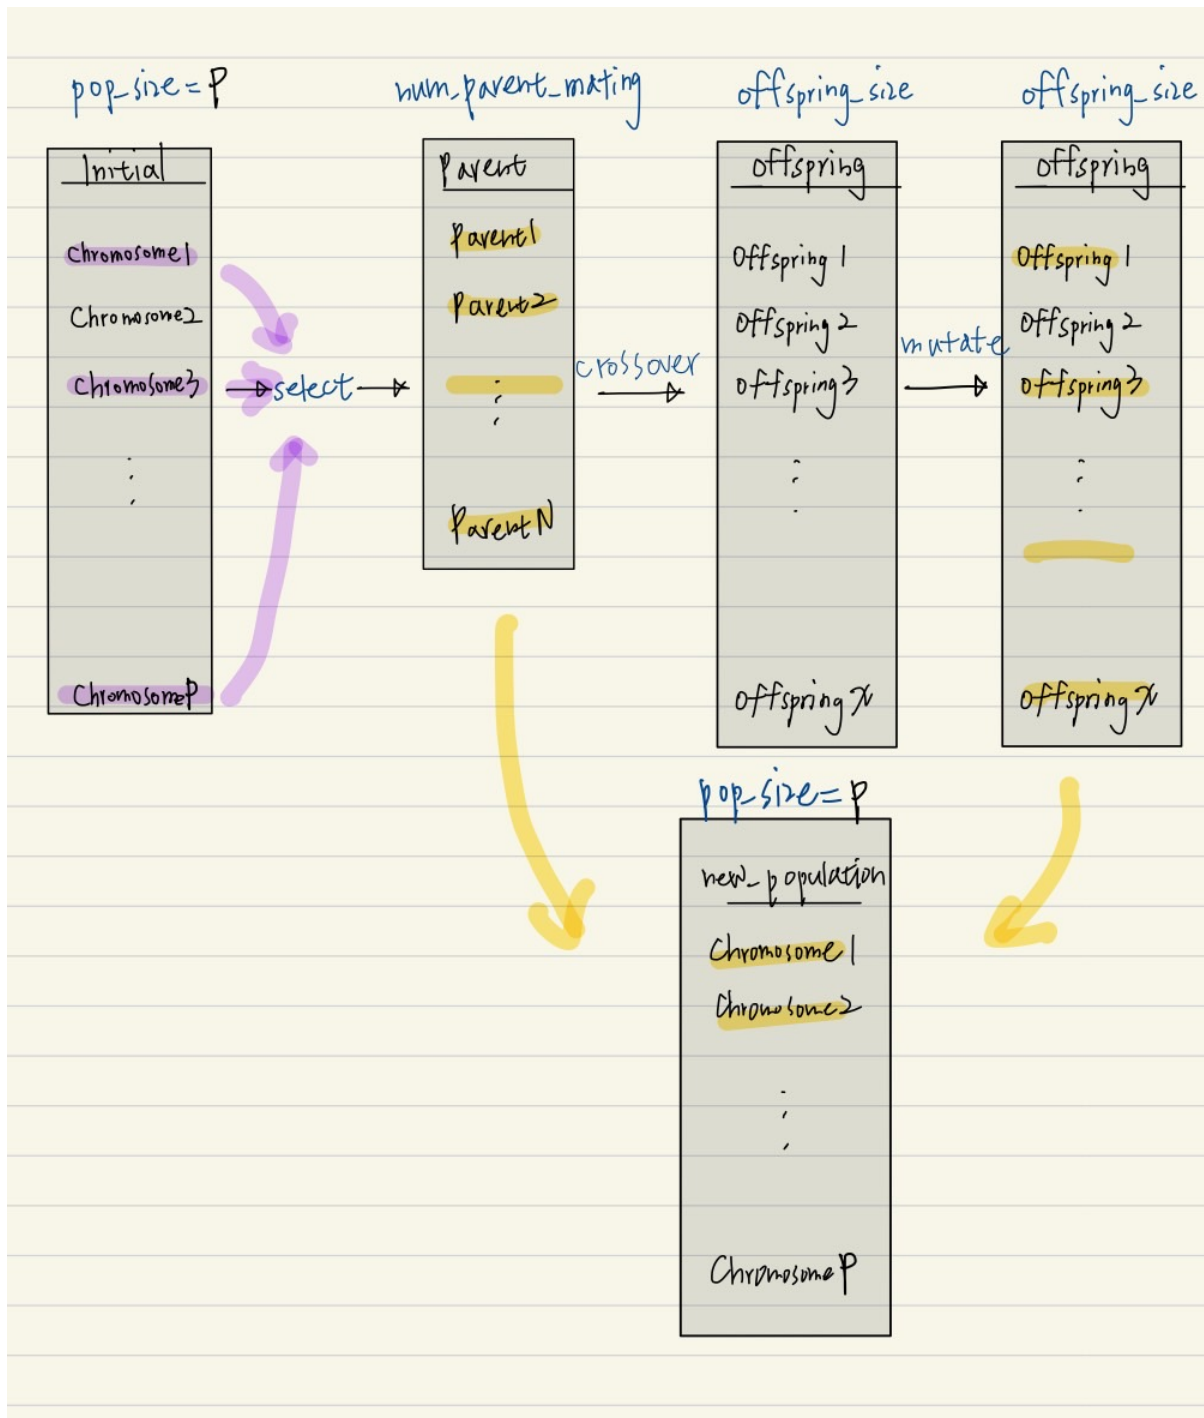 pop_size = P
Initial
Chromosome1
Chromosome2
Chromosome3
select
ChromosomeP
num_parent_mating
Parent
Parent1
Parent2
ParentN
crossover
offspring_size
offspring
Offspring 1
Offspring 2
Offspring 3
Offspring x
mutate
offspring_size
offspring
Offspring 1
Offspring 2
Offspring 3
Offspring x
pop_size = P
new_population
Chromosome 1
Chromosome2
Chromosome P